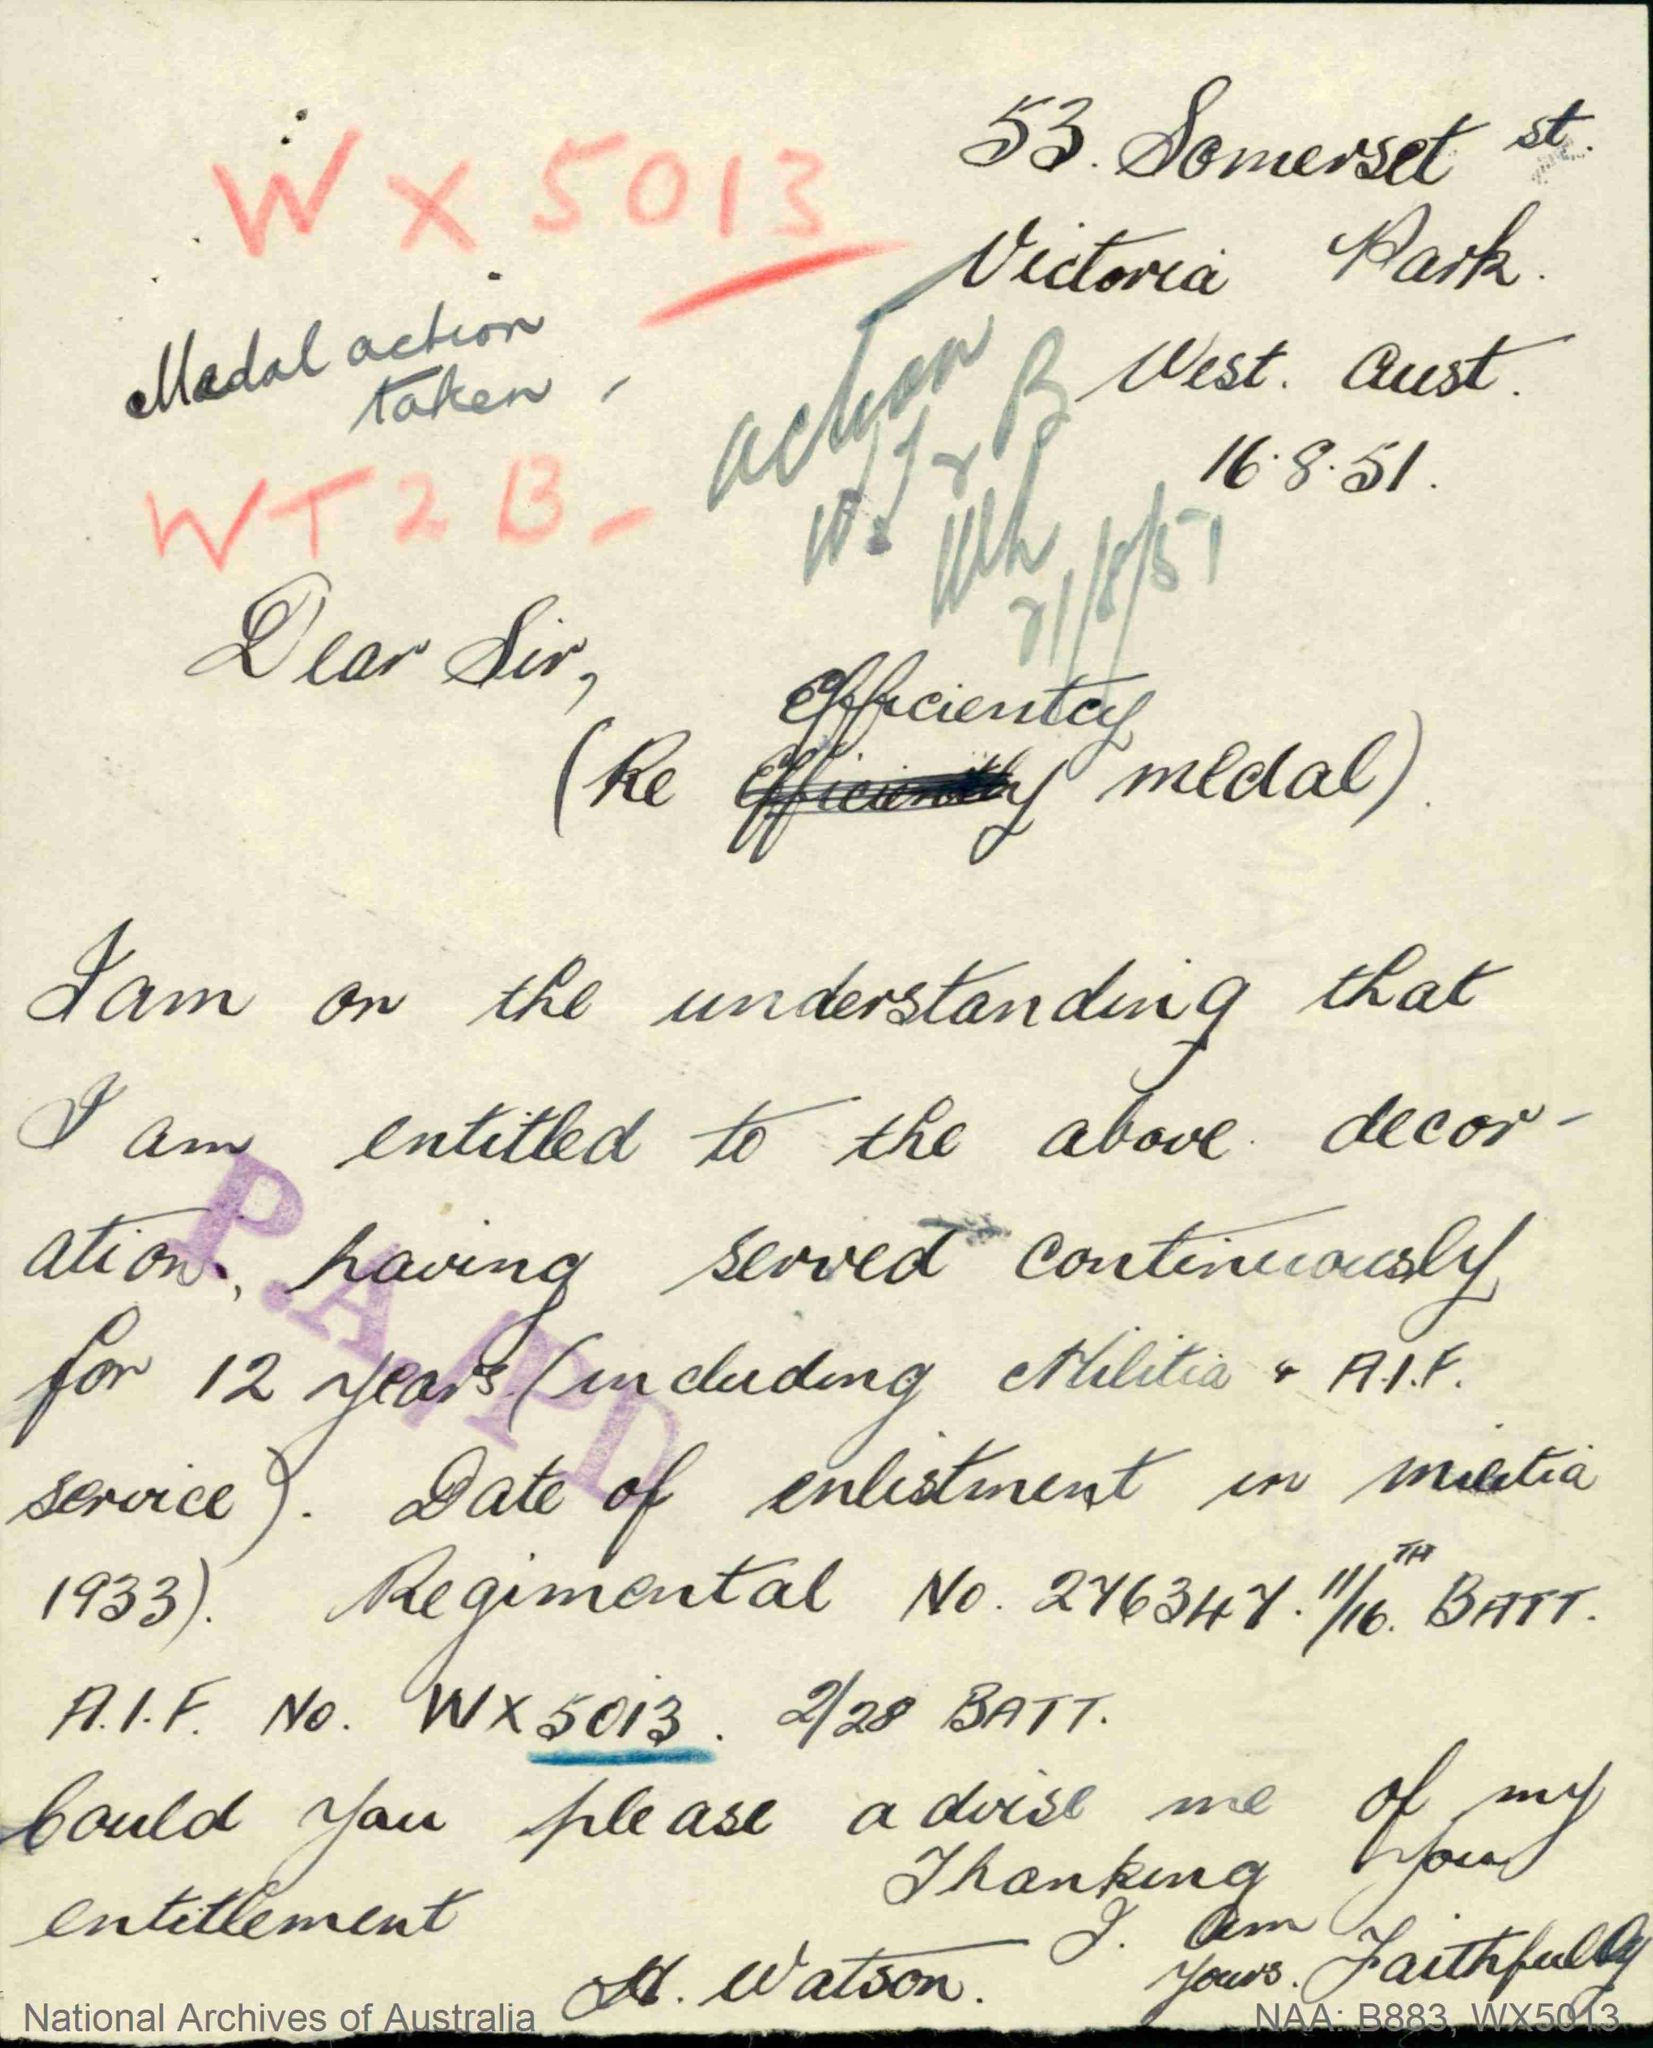 53. Somerset st.
WX5013
Victoria Park.
Medal action
taken
action
West. Aust.
16.8.51.
WT2B
21/8/51
Dear Sir,
Efficientcy
(Re Efficiently medal).
I am on the understanding that
I am entitled to the above decor-
ation, having served continuously
for 12 years (including Militia & A.I.F.
service). Date of enlistment in militia
1933). Regimental No. 276347. 11/16TH. BATT.
P.A./T.D
A.I.F. No. WX5013. 2/28 BATT.
Could you please advise me of my
entitlement
Thanking you
I. am
yours. Faithfully
H. Watson.
National Archives of Australia
NAA: B883, WX5013